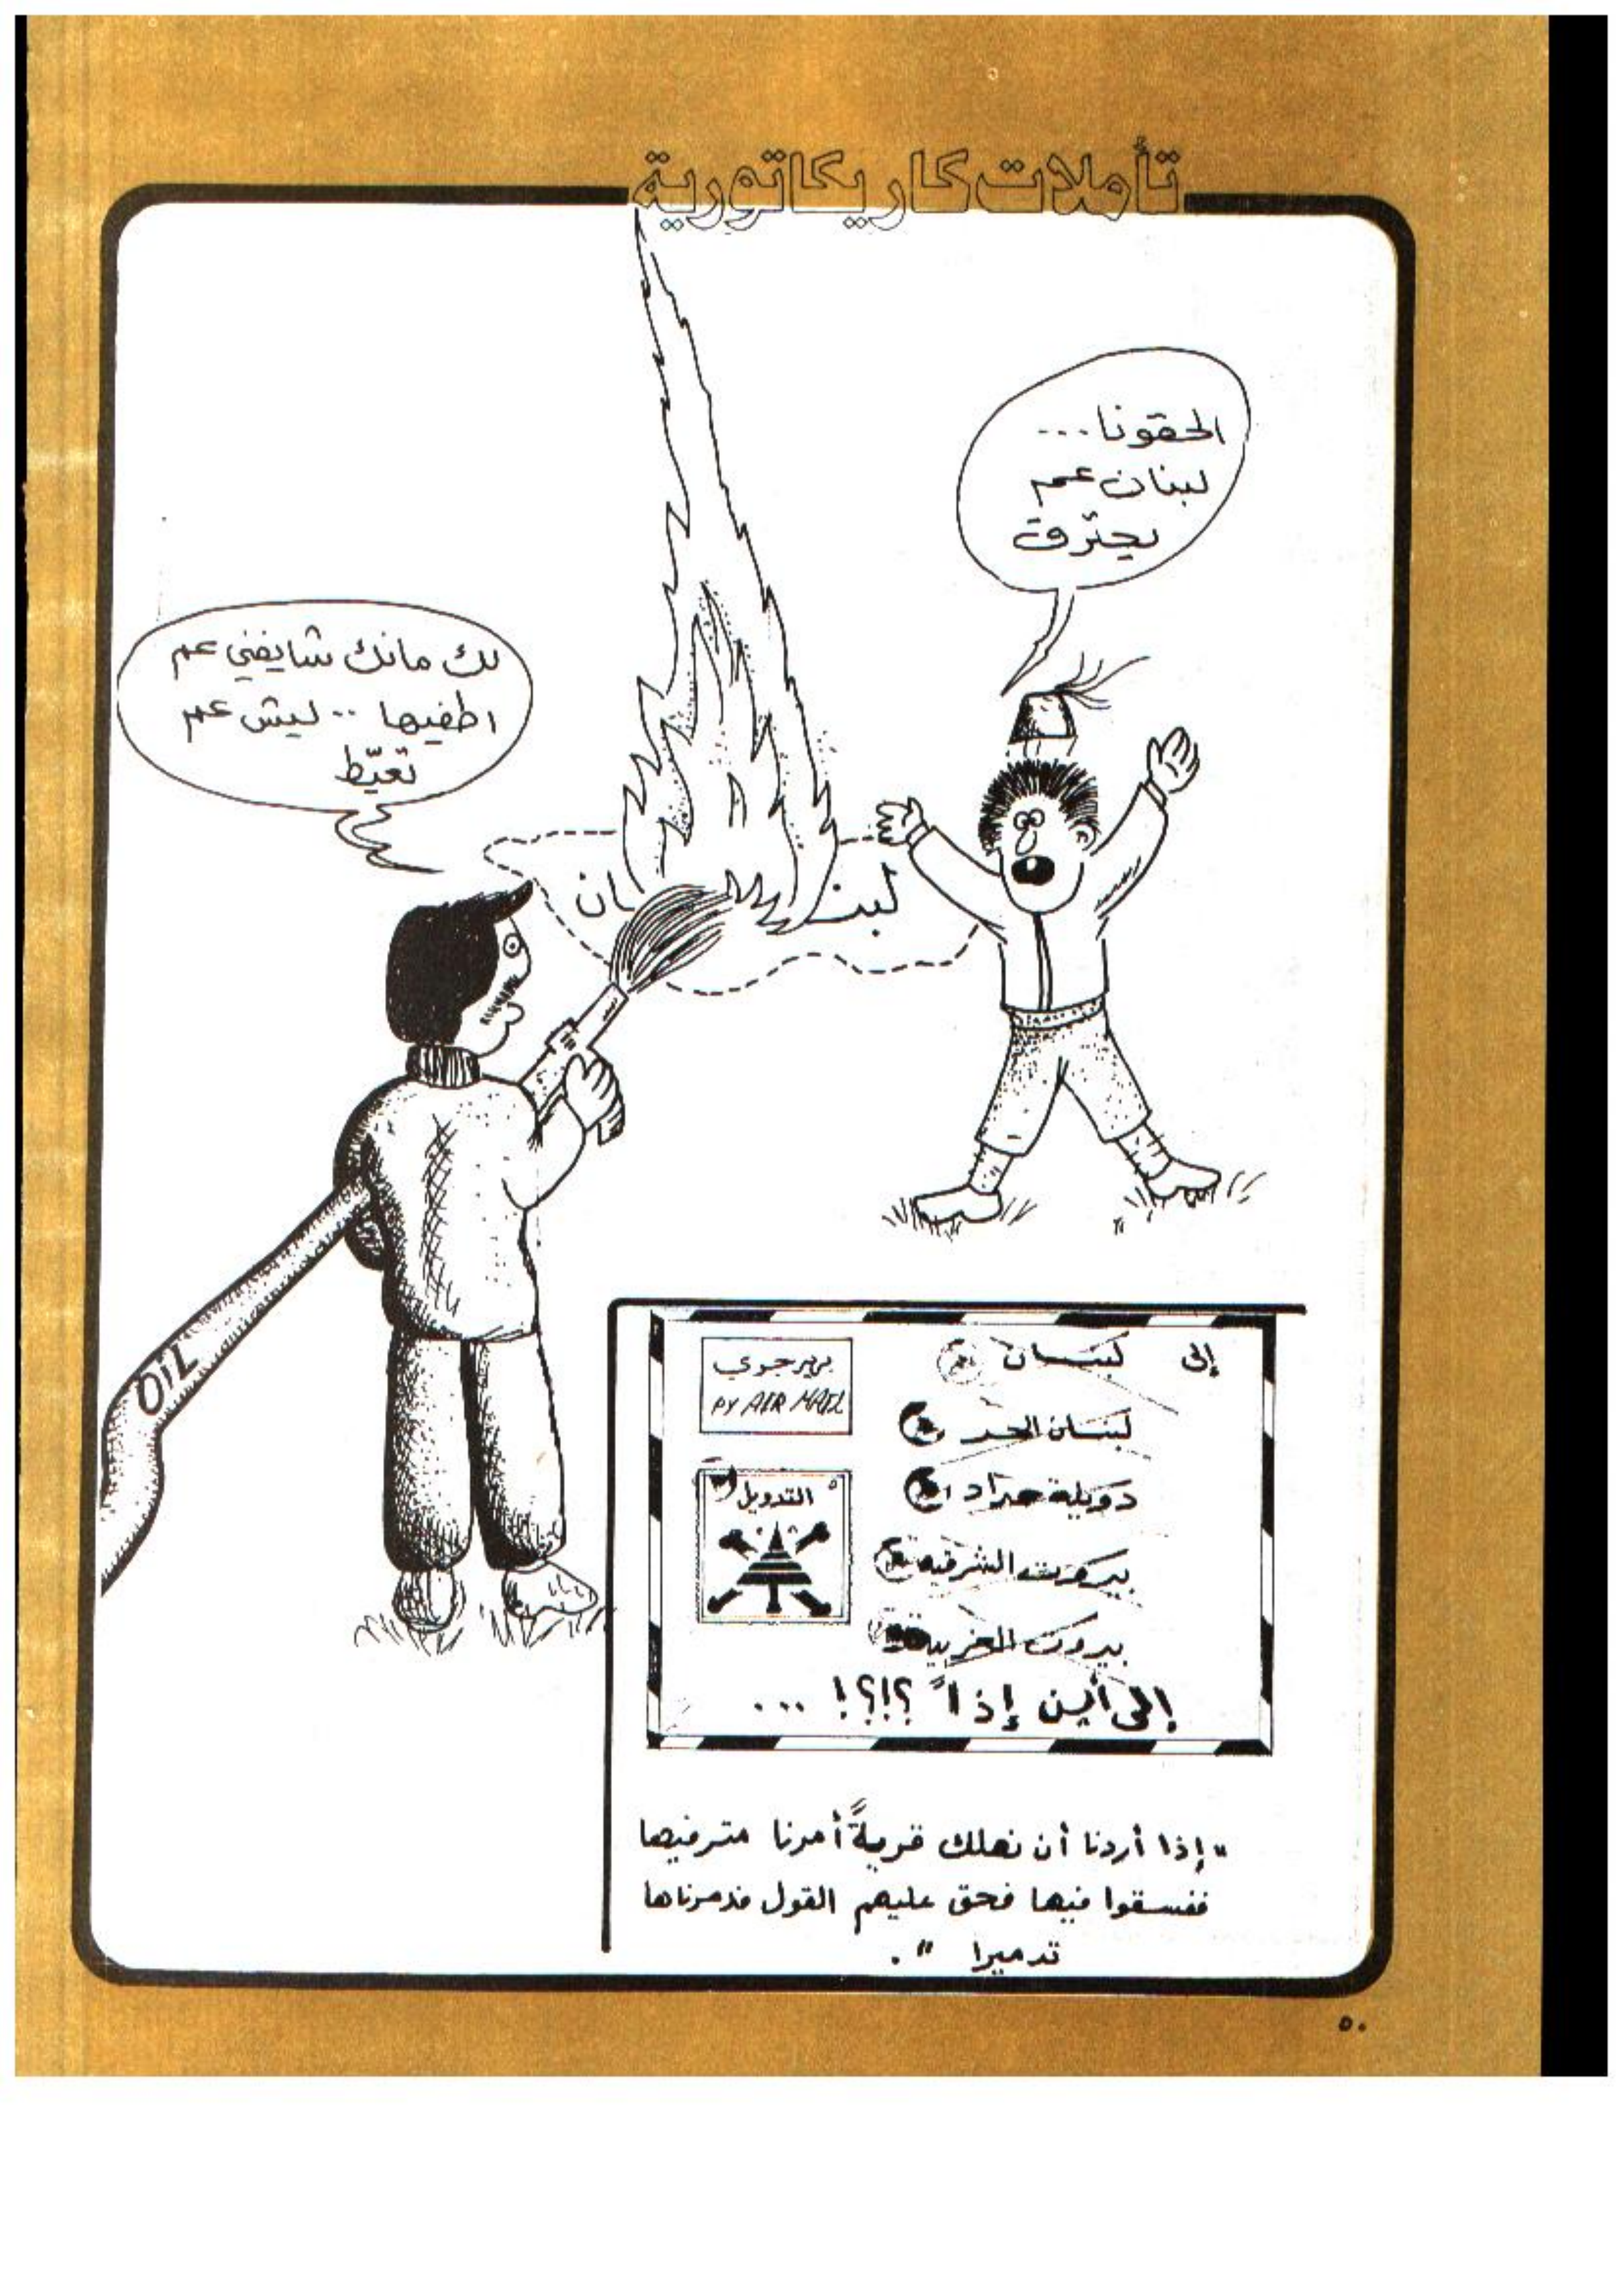 تأملات كاريكاتورية
الحقونا...
لبنان عم
يحترق
لك مانك شايفني عم
اطفيها .. ليش عم
تعيّط
لبنان
OIL
إلى لبنان
لبنان الحر
دويلة حداد
بيروت الشرقية
بيروت الغربية
إلى أين إذاً ؟!؟! ...
بريد جوي
PY AIR MAIL
التدويل
"إذا أردنا أن نهلك قريةً أمرنا مترفيها
ففسقوا فيها فحق عليهم القول فدمرناها
تدميرا ".
٥٠